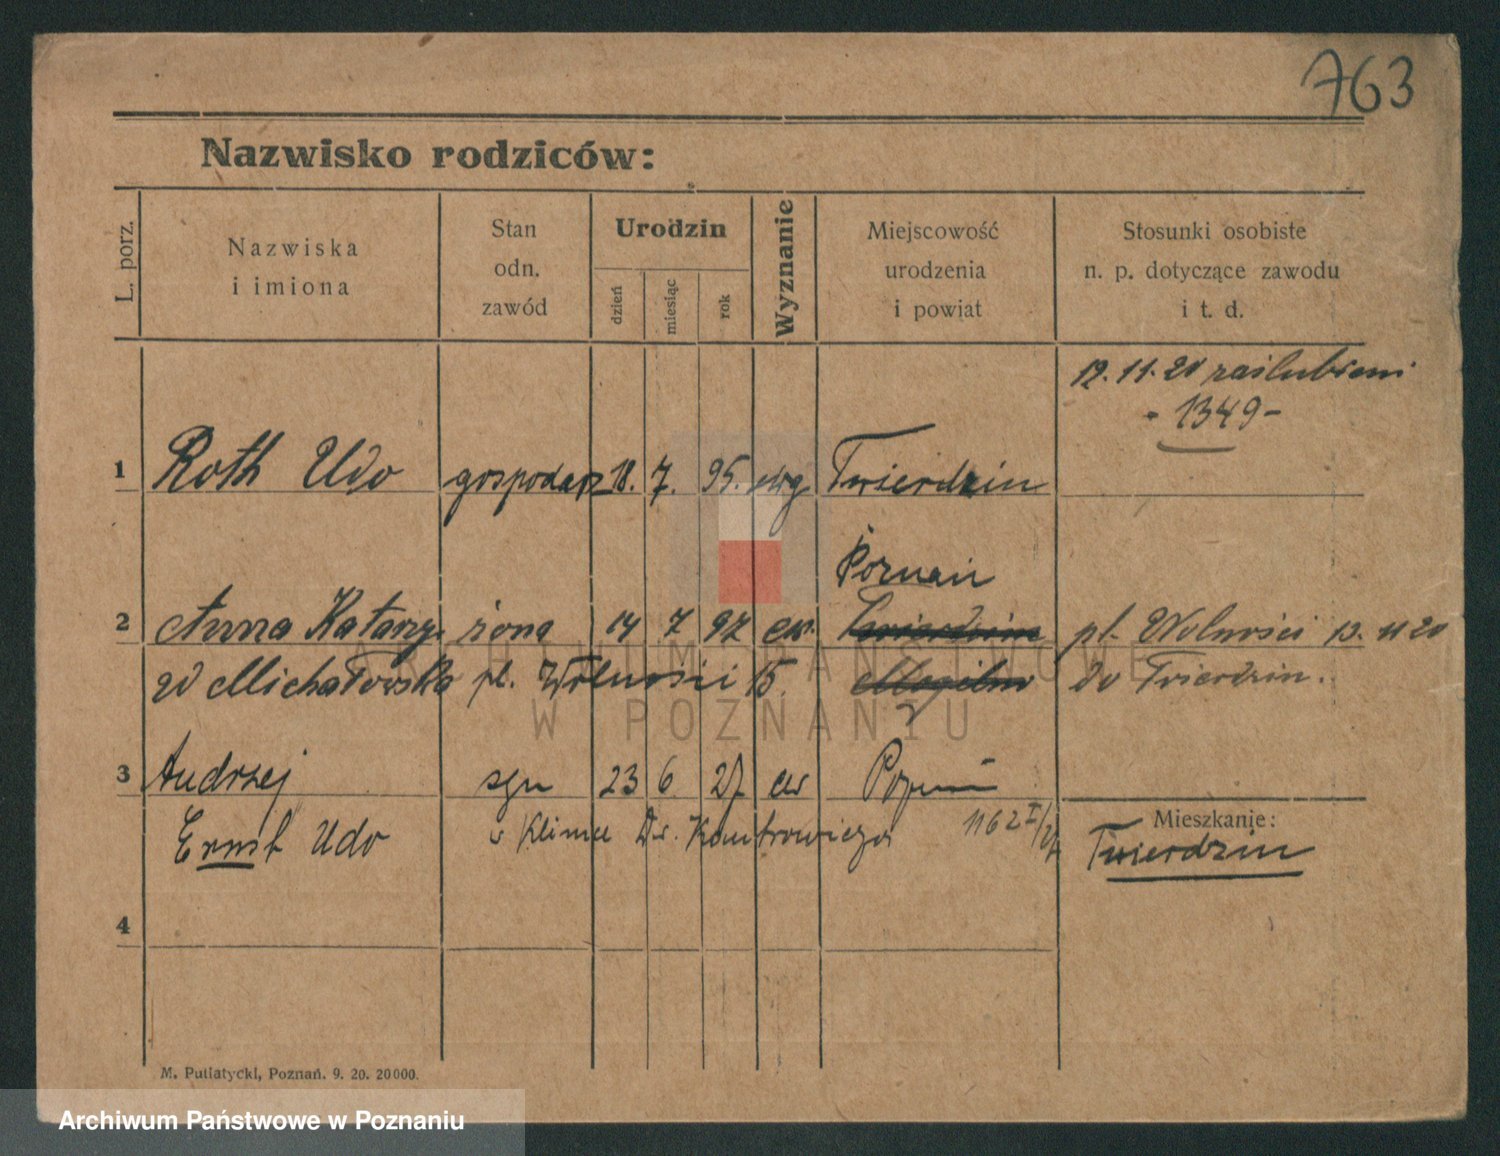 763
Nazwisko rodziców:
L. porz.
Nazwiska
i imiona
Stan
odn.
zawód
Urodzin
dzień
miesiąc
rok
Wyznanie
Miejscowość
urodzenia
i powiat
Stosunki osobiste
n. p. dotyczące zawodu
i t. d.
12.11.20 zaślubieni
- 1349 -
1 Roth Udo gospodarz 18. 7. 95. ewg Twierdzin
Poznań
2 Anna Katarzy. żona 14 7 97 ew. Twierdzin pl. Wolności 13.11.20
zd Michałowska pl. Wolności 15. Mogilno do Twierdzin.
ARCHIWUM PAŃSTWOWE
W POZNANIU
3 Andrzej syn 23 6 27 ew Poznań
Ernst Udo w Klinice Dr. 1162 I/27
Mieszkanie:
Twierdzin
4
M. Putiatycki, Poznań. 9. 20. 20000.
Archiwum Państwowe w Poznaniu